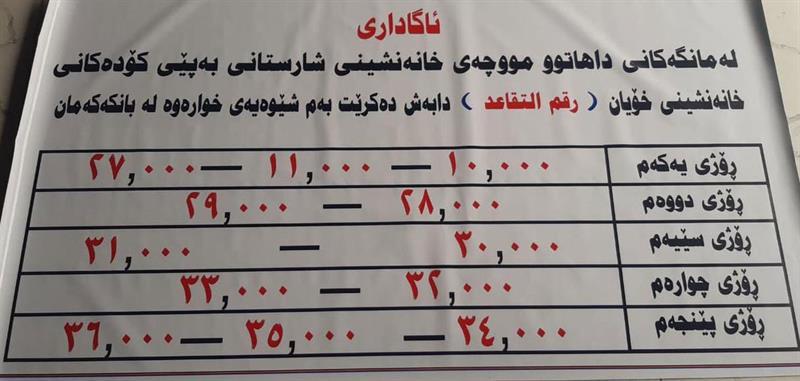 ئاگاداری
لەمانگەکانی داهاتوو مووچەی خانەنشینی شارستانی بەپێی کۆدەکانی
خانەنشینی خۆیان ( رقم التقاعد ) دابەش دەکرێت بەم شێوەیەی خوارەوە لە بانکەکەمان
ڕۆژی یەکەم ١٠,٠٠٠ — ١١,٠٠٠ — ٢٧,٠٠٠
ڕۆژی دووەم ٢٨,٠٠٠ — ٢٩,٠٠٠
ڕۆژی سێیەم ٣٠,٠٠٠ — ٣١,٠٠٠
ڕۆژی چوارەم ٣٢,٠٠٠ — ٣٣,٠٠٠
ڕۆژی پێنجەم ٣٤,٠٠٠ — ٣٥,٠٠٠ — ٣٦,٠٠٠